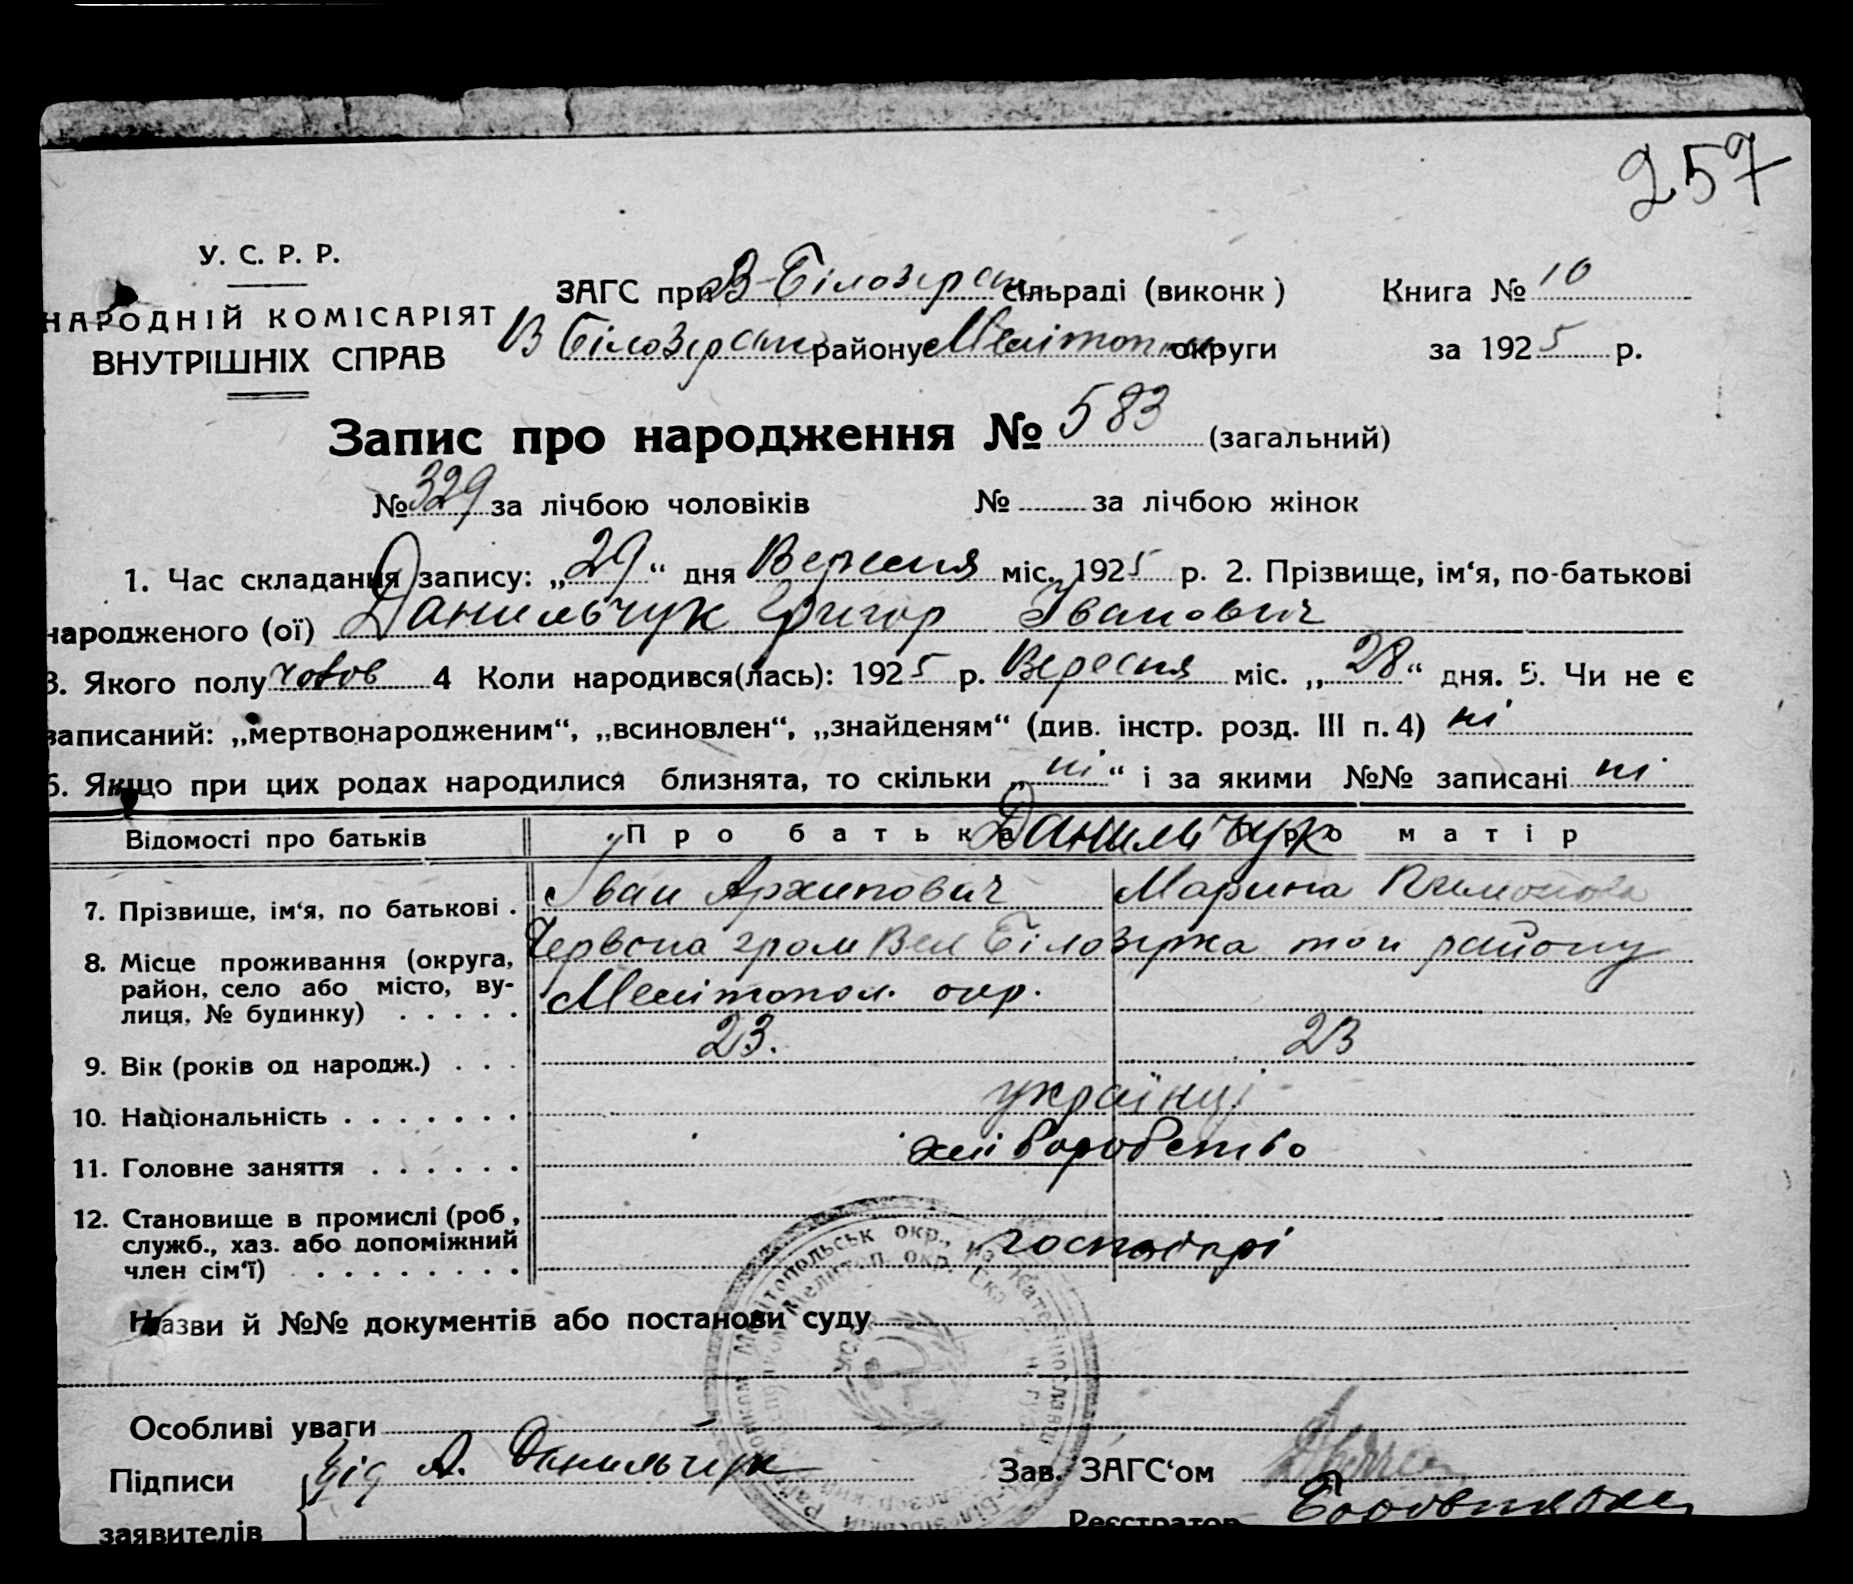 257
У. С. Р. Р.
НАРОДНІЙ КОМІСАРІЯТ
ВНУТРІШНІХ СПРАВ
ЗАГС при В-Білозірськ сільраді (виконк) Книга № 10
В Білозірськ району Мелітопол округи за 1925 р.
Запис про народження № 583 (загальний)
№ 329 за лічбою чоловіків № за лічбою жінок
1. Час складання запису: „29“ дня Вересня міс. 1925 р. 2. Прізвище, ім‘я, по-батькові
народженого (ої) Данильчук Григор Іванович
3. Якого полу чолов 4 Коли народився(лась): 1925 р. Вересня міс. „28“ дня. 5. Чи не є
записаний: „мертвонародженим“, „всиновлен“, „знайденям“ (див. інстр. розд. III п. 4) ні
6. Якщо при цих родах народилися близнята, то скільки „ні“ і за якими №№ записані ні
Відомості про батьків Про батька Данильчук Про матір
7. Прізвище, ім‘я, по батькові . Іван Архипович Марина
8. Місце проживання (округа, Червона гром Вел Білозірка той району
район, село або місто, ву-
лиця, № будинку) . . . . . Мелітопол. окр.
9. Вік (років од народж.) . . . 23. 23
10. Національність . . . . . . . українці
11. Головне заняття . . . . . . хліборобство
12. Становище в промислі (роб,
служб., хаз. або допоміжний господарі
член сім‘ї) . . . . . . . . .
Назви й №№ документів або постанови суду
Особливі уваги
Підписи Дід А. Данильчук Зав. ЗАГС‘ом
заявителів Реєстратор